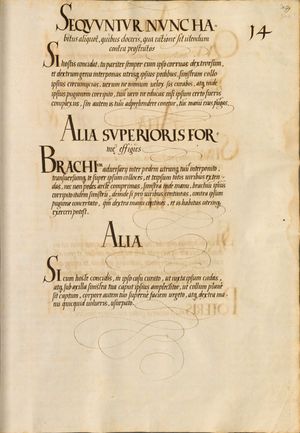 14
SEQVVNTVR NVNC HA
bitus aliquot, quibus doceris, qua ratione sit utendum
contra prostratos
SI hostis concidat, tu pariter semper cum ipso corruas dextrorsum,
et dextrum genu interponas utriusq; ipsius pedibus, sinistram collo
ipsius circumponas, uerum ne nimium uelox sis curabis, atq; inde
pugionem corripito, tuo uero ne obuius casu ipsum certo fueris
complexus, sin autem is tuum adprehendere conetur, tuc manui eius fugas.
ALIA SVPERIORIS FOR
me effigies
BRACHIum aduersarij inter pedem utrunq; tuum interponito
transuersum, te super ipsum collices, et in ipsum totis uiribus exten-
das, nec non pedes arcte comprimas, sinistra inde manu, brachium ipsius
corripito itidem sinistrum, deinde si pro uiribus contendat, contra ipsum
pugione concertato, quem dextra manu contines, et eos habitus utrunq;
exerceri potest.
ALIA
SI cum hoste concidas, in ipso casu curato, ut iuxta ipsum cadas,
atq; sub axilla sinistra tua caput ipsius amplectitor, ut collum plane
sit captum, corpore autem tuo superne faciem urgeto, atq; dextra ma-
nu quicquid uolueris, usurpato.